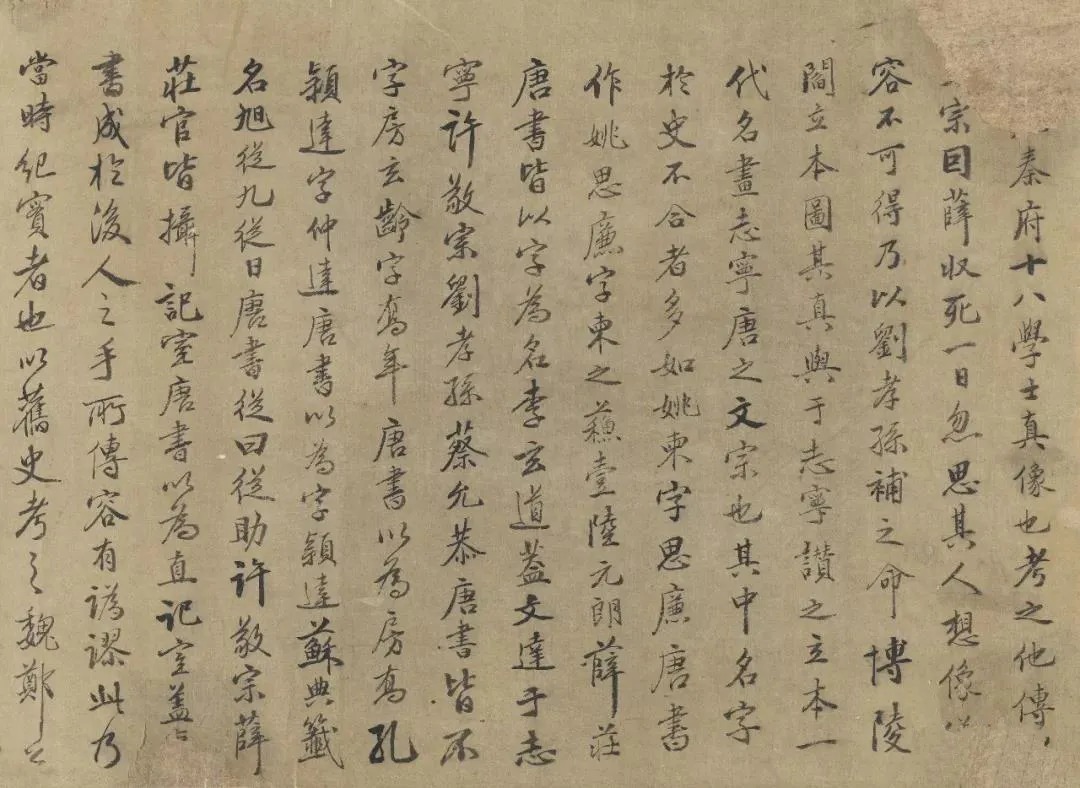 秦府十八學士真像也考之他傳
宗因薛收死一日忽思其人想像
容不可得乃以劉孝孫補之命博陵
閻立本圖其真與于志寧讃之立本一
代名畫志寧唐之文宗也其中名字
於史不合者多如姚柬字思廉唐書
作姚思廉字柬之蘓壹陸元朗薛莊
唐書皆以字為名李玄道蓋文達于志
寧許敬宗劉孝孫蔡允恭唐書皆不
字房玄齡字喬年唐書以為房喬孔
頴達字仲達唐書以為字頴達蘇典籤
名旭從九從日唐書從曰從助許敬宗薛
莊官皆攝記室唐書以為直記室蓋
書成於後人之手所傳容有譌謬此乃
當時紀實者也以舊史考之魏鄭公